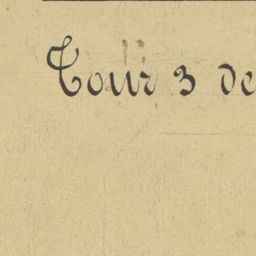 Tour 3 de